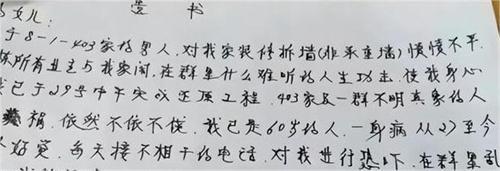 遗 书
女儿:
于8-1-403家的男人,对我家装修拆墙(非承重墙)愤愤不平
所有业主与我家闹,在群里什么难听的人生功击,使我身心
我已于29号中午实施还原工程,403家及一群不明真象的人
祸,依然不依不侥,我已是60岁的人,一身病从27至今
好觉,每天接不相干的电话,对我进行恐吓,在群里乱